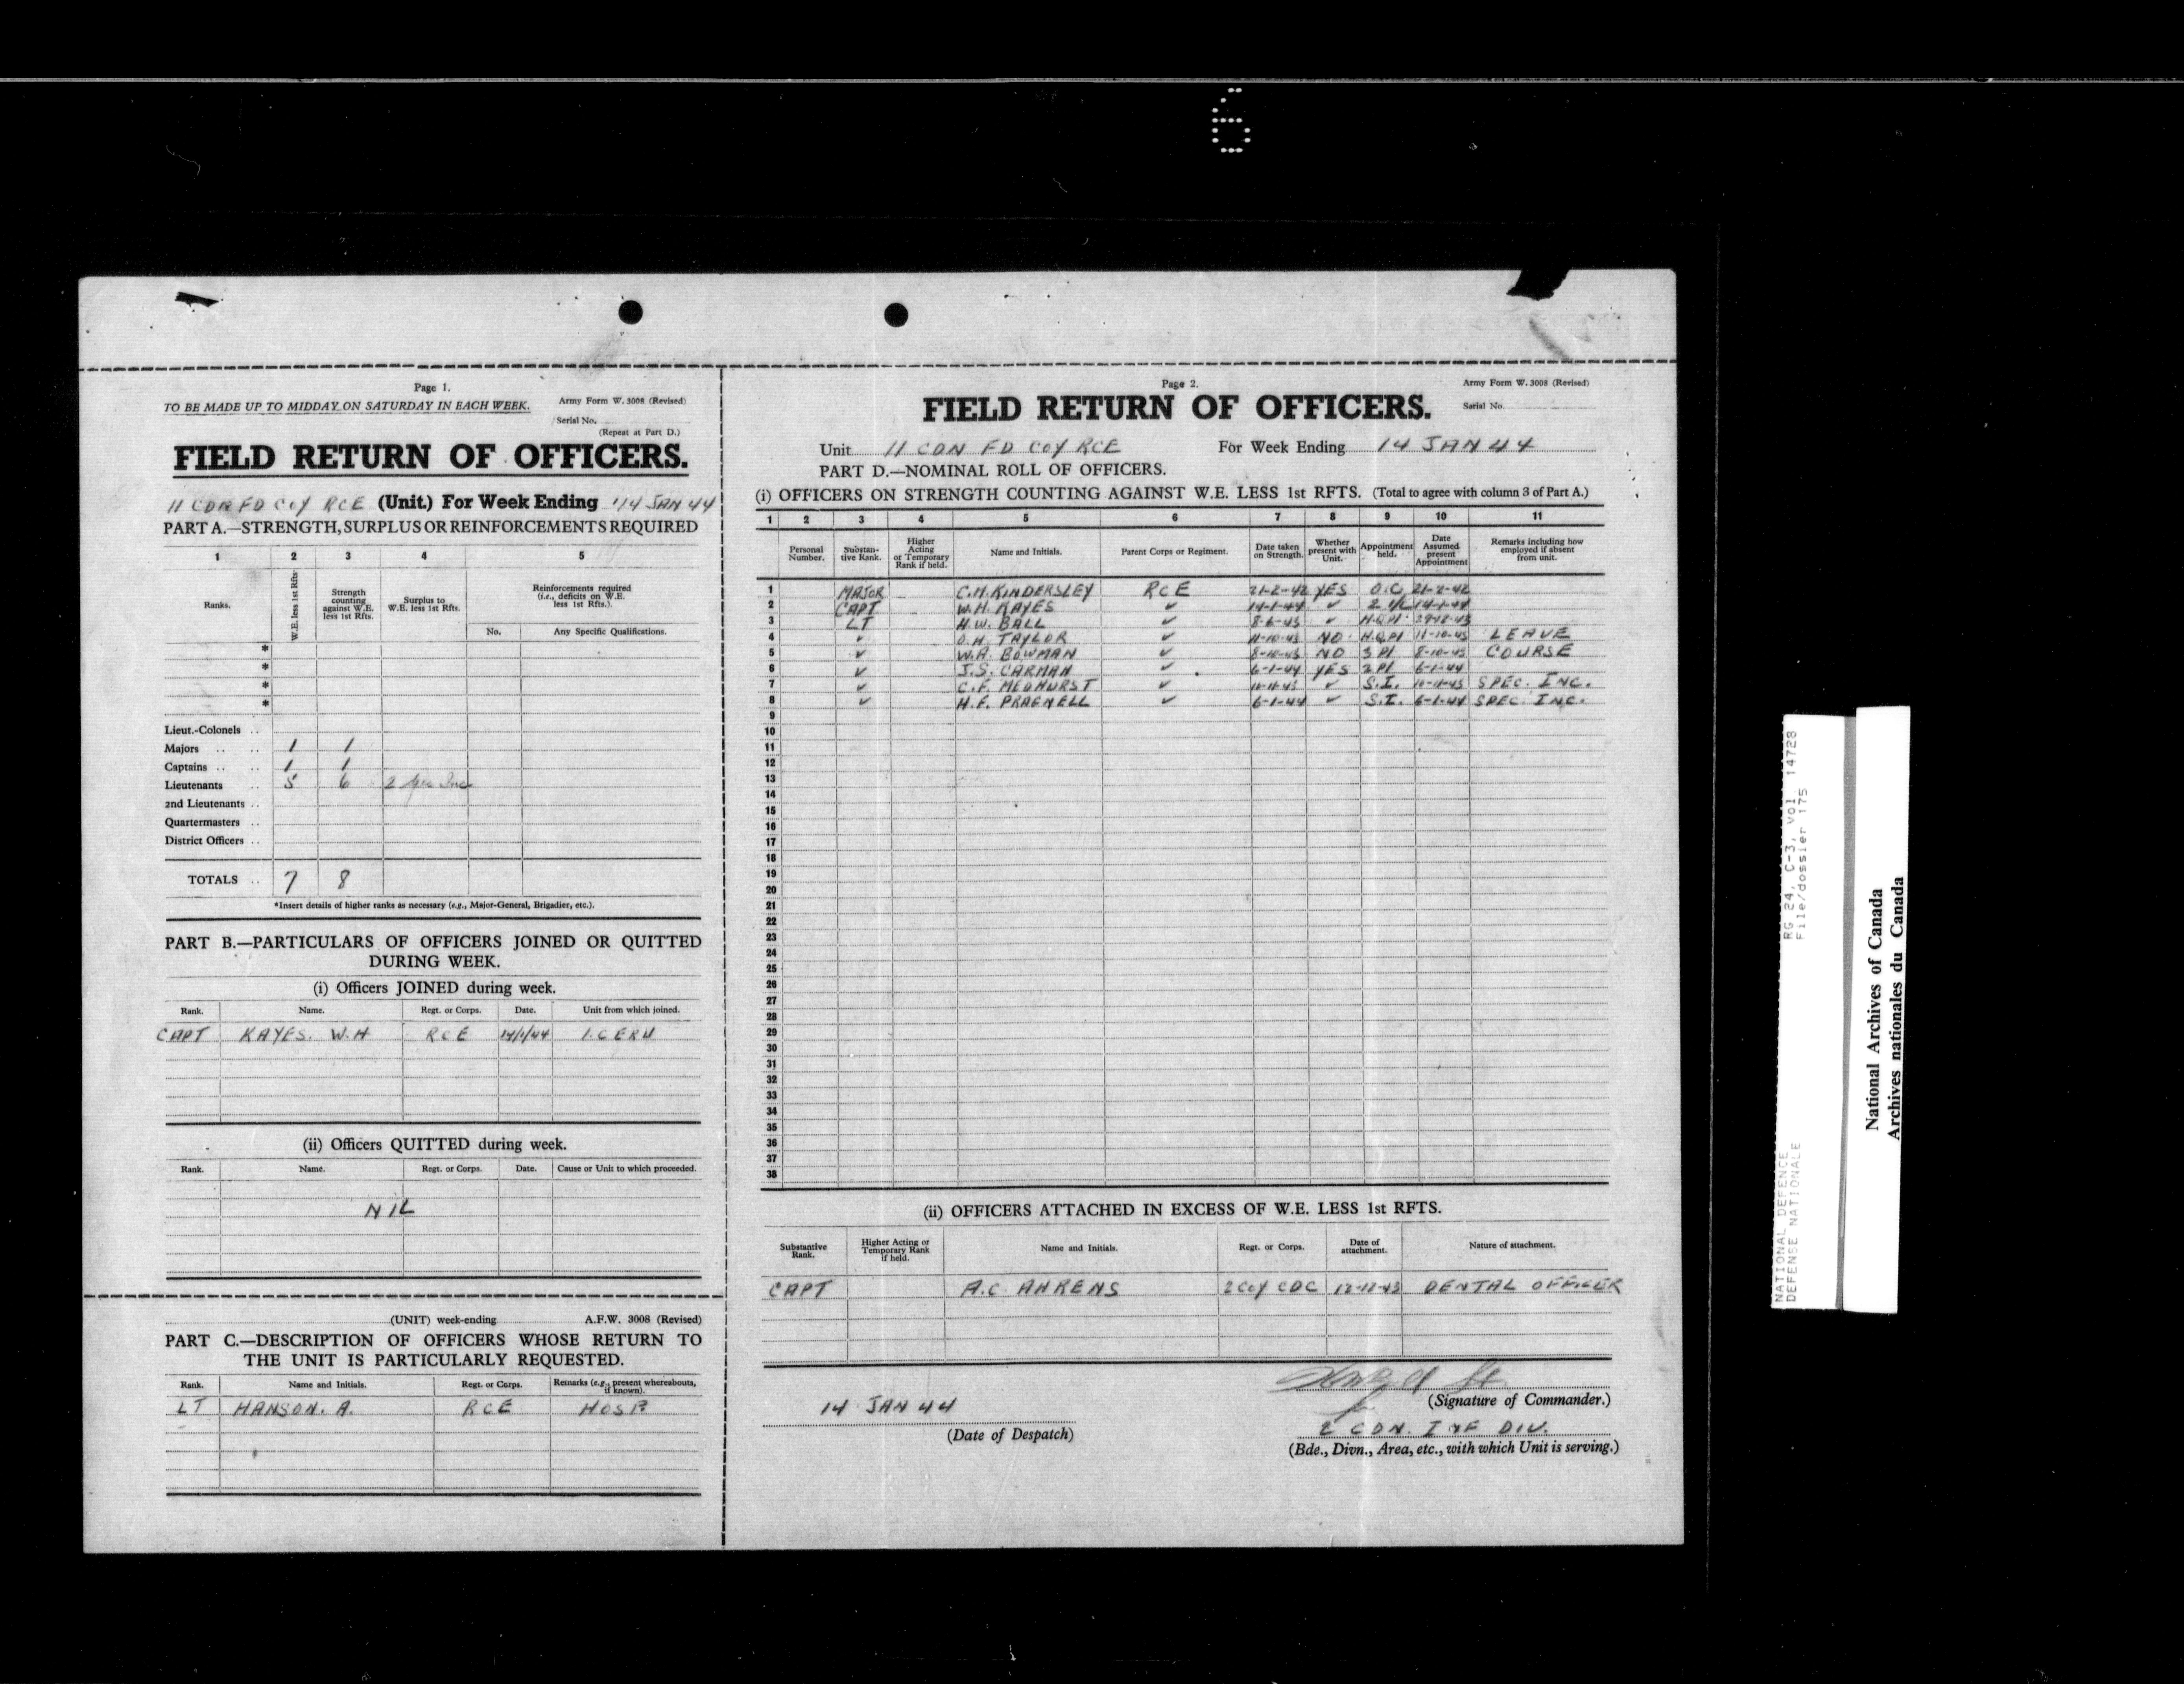 6
Page 1.
TO BE MADE UP TO MIDDAY ON SATURDAY IN EACH WEEK.
Army Form W. 3008 (Revised)
Serial No.
(Repeat at Part D.)
FIELD RETURN OF OFFICERS.
11 CDN FD COY RCE (Unit.) For Week Ending 14 JAN 44
PART A.—STRENGTH, SURPLUS OR REINFORCEMENTS REQUIRED
1 2 3 4 5
Ranks. W.E. less 1st Rfts. Strength counting against W.E. less 1st Rfts. Surplus to W.E. less 1st Rfts. Reinforcements required (i.e., deficits on W.E. less 1st Rfts.).
No. Any Specific Qualifications.
*
*
*
*
Lieut.-Colonels ..
Majors .. .. 1 1
Captains .. .. 1 1
Lieutenants .. 5 6 2 Spec Inc
2nd Lieutenants ..
Quartermasters ..
District Officers ..
TOTALS .. 7 8
*Insert details of higher ranks as necessary (e.g., Major-General, Brigadier, etc.).
PART B.—PARTICULARS OF OFFICERS JOINED OR QUITTED
DURING WEEK.
(i) Officers JOINED during week.
Rank. Name. Regt. or Corps. Date. Unit from which joined.
CAPT KAYES. W.H RCE 14/1/44 1.CERU
(ii) Officers QUITTED during week.
Rank. Name. Regt. or Corps. Date. Cause or Unit to which proceeded.
NIL
(UNIT) week-ending A.F.W. 3008 (Revised)
PART C.—DESCRIPTION OF OFFICERS WHOSE RETURN TO
THE UNIT IS PARTICULARLY REQUESTED.
Rank. Name and Initials. Regt. or Corps. Remarks (e.g., present whereabouts, if known).
LT HANSON. A. RCE HOSP.
Page 2.
Army Form W. 3008 (Revised)
FIELD RETURN OF OFFICERS.
Serial No.
Unit 11 CDN FD COY RCE For Week Ending 14 JAN 44
PART D.—NOMINAL ROLL OF OFFICERS.
(i) OFFICERS ON STRENGTH COUNTING AGAINST W.E. LESS 1st RFTS. (Total to agree with column 3 of Part A.)
1 2 3 4 5 6 7 8 9 10 11
Personal Number. Substantive Rank. Higher Acting or Temporary Rank if held. Name and Initials. Parent Corps or Regiment. Date taken on Strength. Whether present with Unit. Appointment held. Date Assumed present Appointment Remarks including how employed if absent from unit.
1 MAJOR C.H. KINDERSLEY RCE 21-2-42 YES O.C 21-2-42
2 CAPT W.H. KAYES ✓ 14-1-44 ✓ 2 I/C 14-1-44
3 LT H.W. BALL ✓ 8-6-43 ✓ H.Q Pl 29-12-43
4 ✓ O.H. TAYLOR ✓ 11-10-43 NO H.Q Pl 11-10-43 LEAVE
5 ✓ W.A. BOWMAN ✓ 8-10-43 NO 3 Pl 8-10-43 COURSE
6 ✓ J.S. CARMAN ✓ 6-1-44 YES 2 Pl 6-1-44
7 ✓ C.F. MEDHURST ✓ ✓ S.I. SPEC. INC.
8 ✓ H.F. PRAGNELL ✓ 6-1-44 ✓ S.I. 6-1-44 SPEC. INC.
9
10
11
12
13
14
15
16
17
18
19
20
21
22
23
24
25
26
27
28
29
30
31
32
33
34
35
36
37
38
(ii) OFFICERS ATTACHED IN EXCESS OF W.E. LESS 1st RFTS.
Substantive Rank. Higher Acting or Temporary Rank if held. Name and Initials. Regt. or Corps. Date of attachment. Nature of attachment.
CAPT A.C. AHRENS 2 COY CDC 12-12-43 DENTAL OFFICER
(Signature of Commander.)
14 JAN 44
(Date of Despatch)
2 CDN. INF DIV.
(Bde., Divn., Area, etc., with which Unit is serving.)
NATIONAL DEFENCE RG 24, C-3, vol 14728
DEFENSE NATIONALE File/dossier 175
National Archives of Canada
Archives nationales du Canada